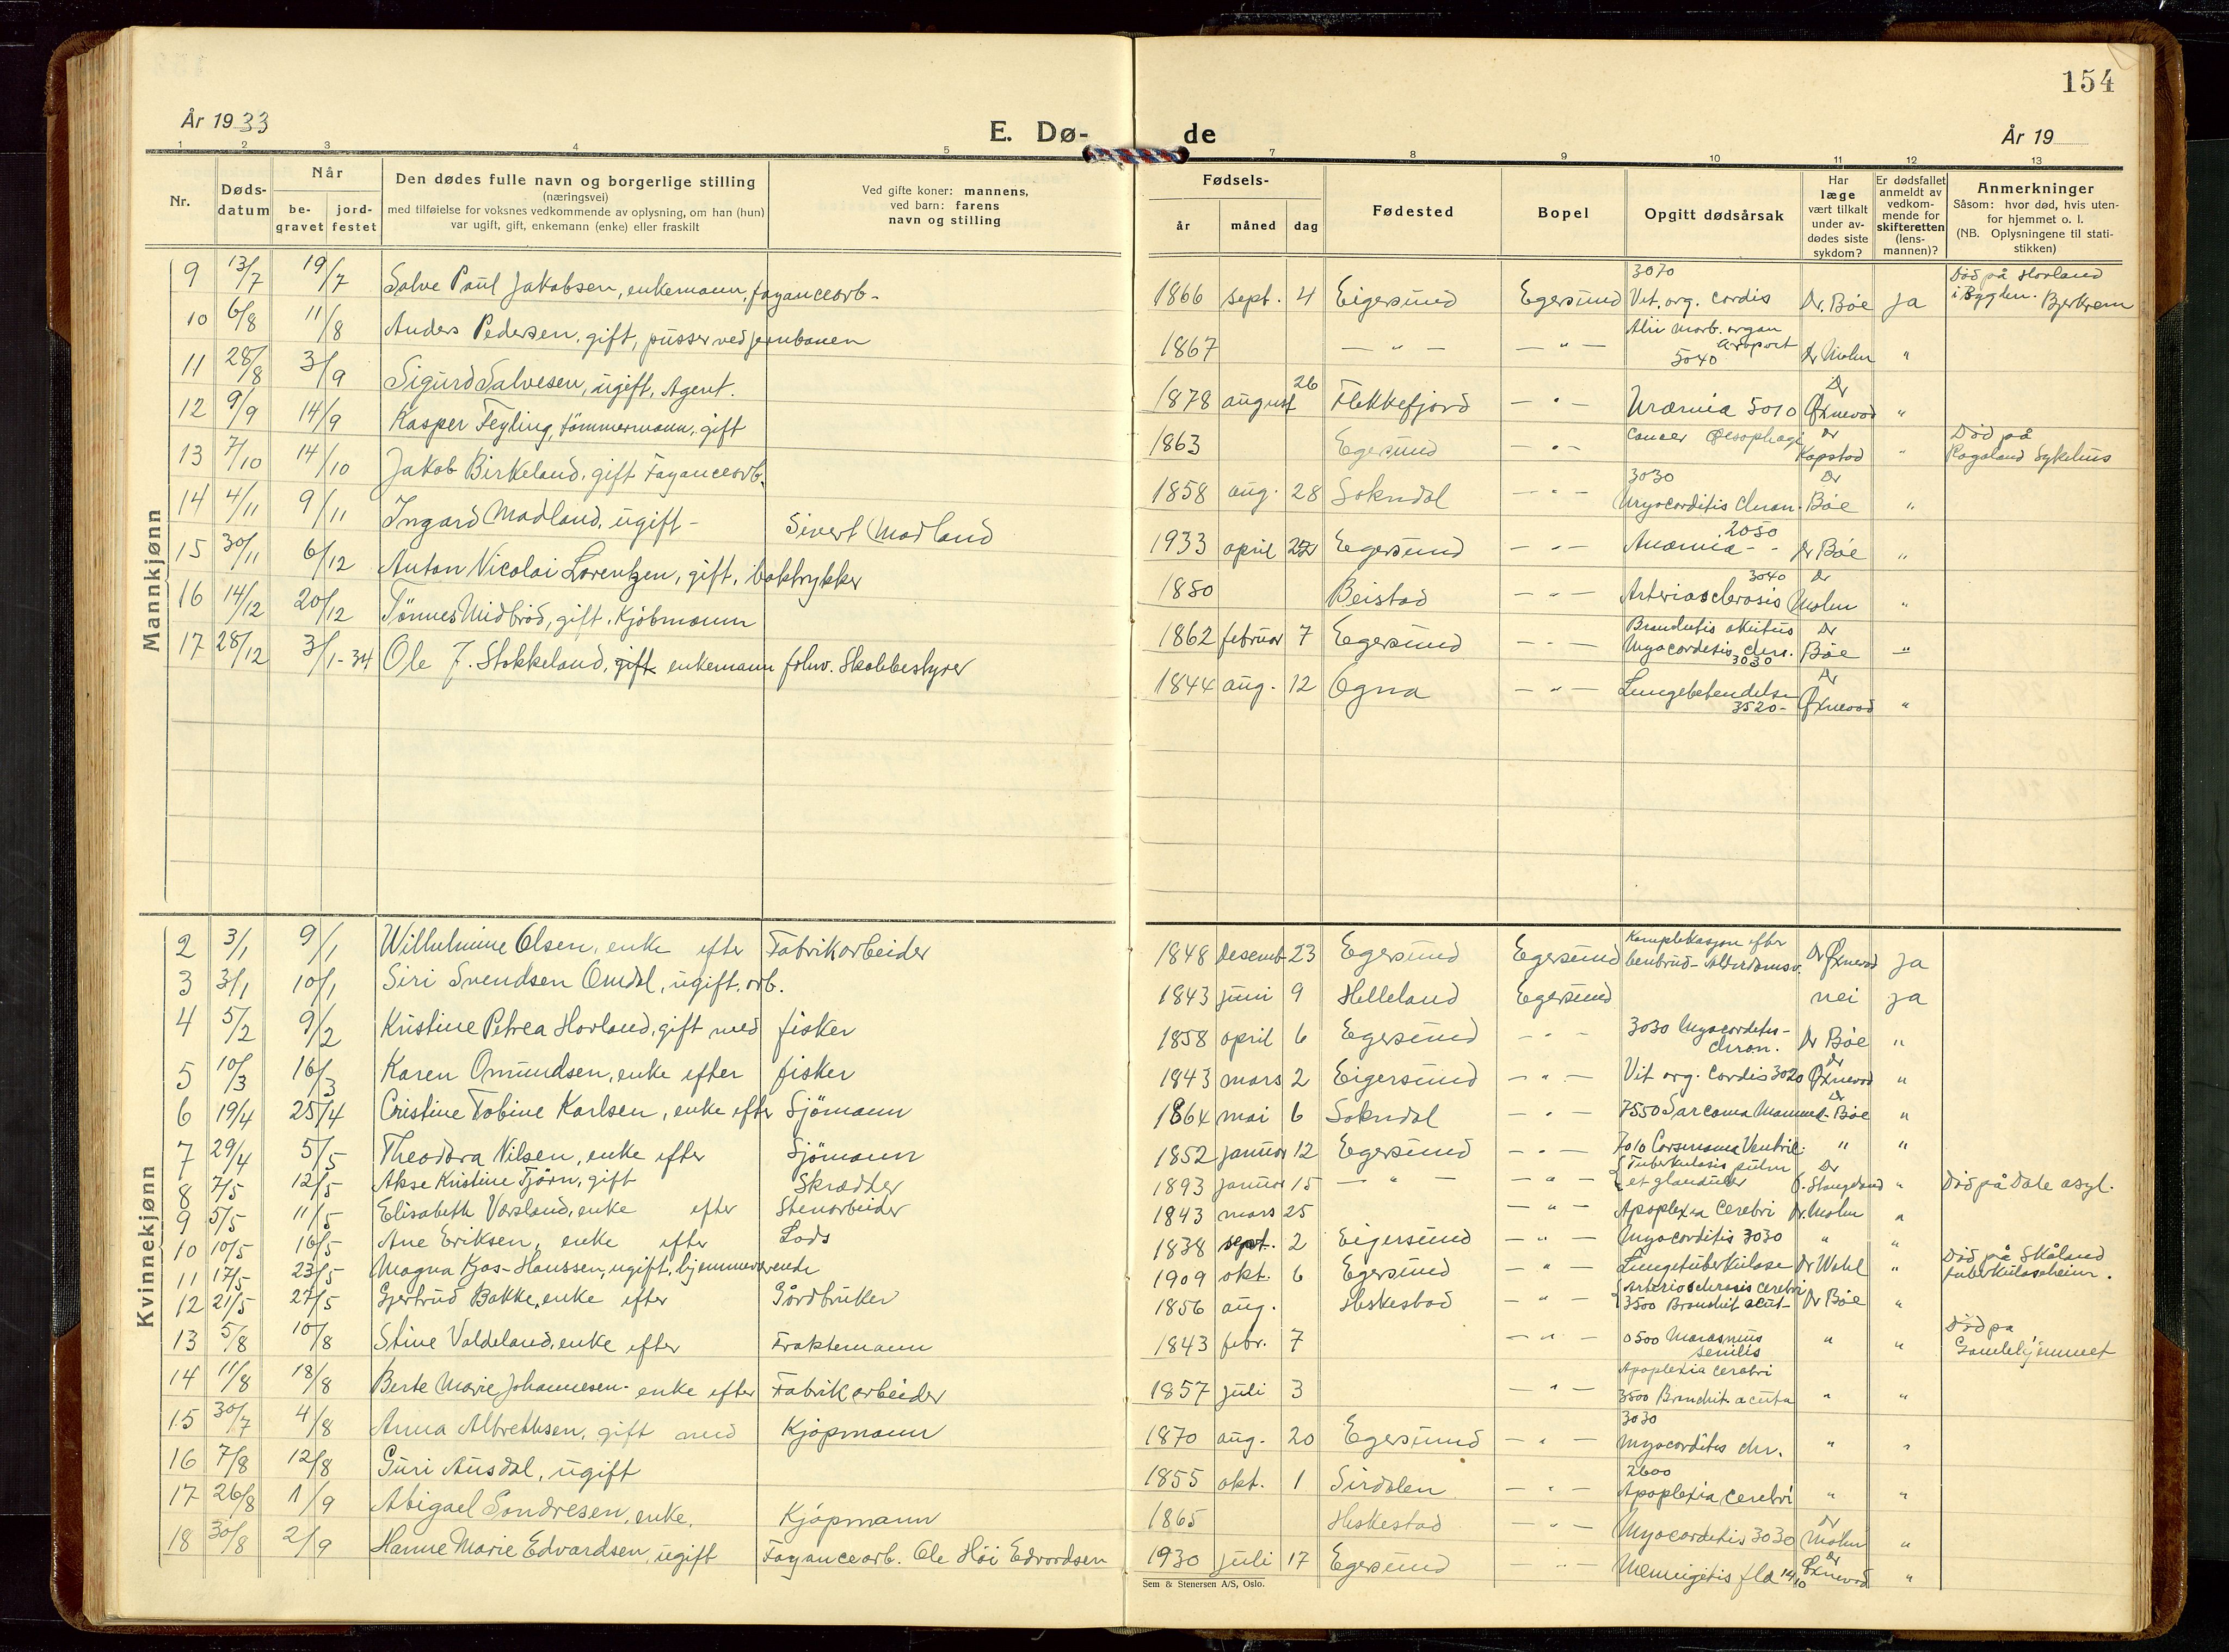 154
År 1933
E. Dø-
de
År 19
1 2 3 4 5 7 8 9 10 11 12 13
Nr.
Døds-
datum
Når
be-
gravet
jord-
festet
Den dødes fulle navn og borgerlige stilling
(næringsvei)
med tilføielse for voksnes vedkommende av oplysning, om han (hun)
var ugift, gift, enkemann (enke) eller fraskilt
Ved gifte koner: mannens,
ved barn: farens
navn og stilling
Fødsels-
år måned dag
Fødested
Bopel
Opgitt dødsårsak
Har
læge
vært tilkalt
under av-
dødes siste
sykdom?
Er dødsfallet
anmeldt av
vedkom-
mende for
skifteretten
(lens-
mannen)?
Anmerkninger
Såsom: hvor død, hvis uten-
for hjemmet o. l.
(NB. Oplysningene til stati-
stikken)
Mannkjønn
9 13/7 19/7 Salve Paul Jakobsen, enkemann, fayancearb-
10 6/8 11/8 Anders Pedersen, gift, pusser ved jernbanen
11 28/8 3/9 Sigurd Salvesen, ugift, Agent.
12 9/9 14/9 Kasper Feyling, tømmermann, gift
13 7/10 14/10 Jakob Birkeland, gift Fayancearb.
14 4/11 9/11 Ingard Madland, ugift - Sivert Madland
15 30/11 6/12 Anton Nicolai Lorentzen, gift, boktrykker
16 14/12 20/12 Tønnes Midbrød, gift. Kjøbmann
17 28/12 3/1-34 Ole J. Stokkeland, gift enkemann fohv. Skolebestyrer
3070
1866 sept. 4 Eigersund Egersund Vit. org. cordis Dr. Bøe ja
Død på Hovland
i Bygden. Bjerkrem
Alii morb. organ
1867 — " — — " — 5040 Dr Mohn "
1878 august 26 Flekkefjord — " — Uræmia 5010 Dr Øxnevad "
1863 Egersund — " — Cancer Oesophagi Dr Kapstad "
Død på
Rogaland Sykehus
3030
1858 aug. 28 Sokndal — " — Myocorditis chron. Dr Bøe "
2050
1933 april Egersund — " — Anæmia - - Dr Bøe "
3040
1850 Beistad — " — Arteriosclerosis Dr Mohn "
1862 februar 7 Egersund — " — Myocordetis chr. 3030 Dr Bøe "
1844 aug. 12 Ogna — " — Lungebetendelse 3520- Dr Øxnevad "
Kvinnekjønn
2 3/1 9/1 Wilhelmine Olsen, enke efter Fabrikarbeider
3 3/1 10/1 Siri Svendsen Omdal, ugift, arb.
4 5/2 9/2 Kristine Petrea Hovland, gift med fisker
5 10/3 16/3 Karen Omundsen, enke efter fisker
6 19/4 25/4 Cristine Tobine Karlsen, enke efter Sjømann
7 29/4 5/5 Theodora Nilsen, enke efter Sjømann
8 7/5 12/5 Akse Kristine Tjörn, gift Skrædder
9 5/5 11/5 Elisabeth Vorsland, enke efter Stenarbeider
10 10/5 16/5 Ane Eriksen, enke efter Lods
11 17/5 23/5 Magna Kjos-Hanssen, ugift, hjemmeværende
12 21/5 27/5 Gjertrud Bakke, enke efter Gårdbruker
13 5/8 10/8 Stine Valdeland, enke efter Fraktemann
14 11/8 18/8 Berte Marie Johannesen- enke efter Fabrikarbeider
15 30/7 4/8 Anna Albrethsen, gift med Kjøpmann
16 7/8 12/8 Guri Ausdal, ugift
17 26/8 1/9 Abigael Sondresen, enke, Kjøpmann
18 30/8 2/9 Hanne Marie Edvardsen, ugift Fayancearb. Ole Höi Edvardsen
Komplikasjon efter
1848 desemb. 23 Egersund Egersund benbrud- Alderdomsv. Dr Øxnevad ja
1843 juni 9 Helleland Egersund nei ja
1858 april 6 Egersund — " — 3030 Myocordites- chron. Dr Bøe "
1843 mars 2 Eigersund — " — Vit org. Cordis 3020 Dr Øxnevad "
1864 mai 6 Sokndal — " — 7550 Sarcoma Mammae Dr Bøe "
1852 januar 12 Egersund — " — 7010 Ventric. " "
Tuberkulosis pulm
1893 januar 15 — " — — " — et glanduler Dr Stangeland " Død på Dale asyl.
1843 mars 25 — " — Apoplexia Cerebri Dr. Mohn "
1838 sept. 2 Eigersund — " — Myocorditis 3030 " "
1909 okt. 6 Egersund — " — Lungetuberkulose Dr Wahl "
Død på Skåland
tuberkuloseheim.
Arteriosclerosis cerebri
1856 aug. Heskestad — " — 3500 Bronchit acut- Dr Bøe "
1843 febr. 7 — " — 0500 Marasmus senilis " "
Død på
Gamlehjemmet
Apoplexia cerebri
1857 juli 3 — " — 3500 Bronchit. acuta " "
3030
1870 aug. 20 Egersund — " — Myocorditis chr. " "
2600
1855 okt. 1 Sirdalen — " — Apoplexia Cerebri " "
1865 Heskestad — " — Myocordetis 3030 Dr Mohn "
1930 juli 17 Egersund — " — Meningitis Dr Øxnevad "
Sem & Stenersen A/S, Oslo.